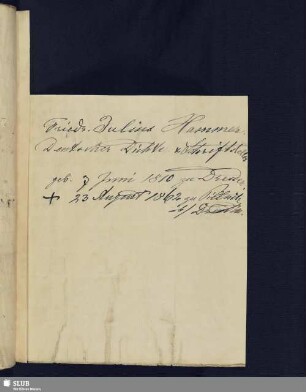 Friedr. Julius Hammer.
Deutscher Dichter u. Schriftsteller
geb. 7 Juni 1810 zu Dresden,
+ 23 August 1862 zu Pillnitz
b/ Dresden.
SLUB
Wir führen Wissen.